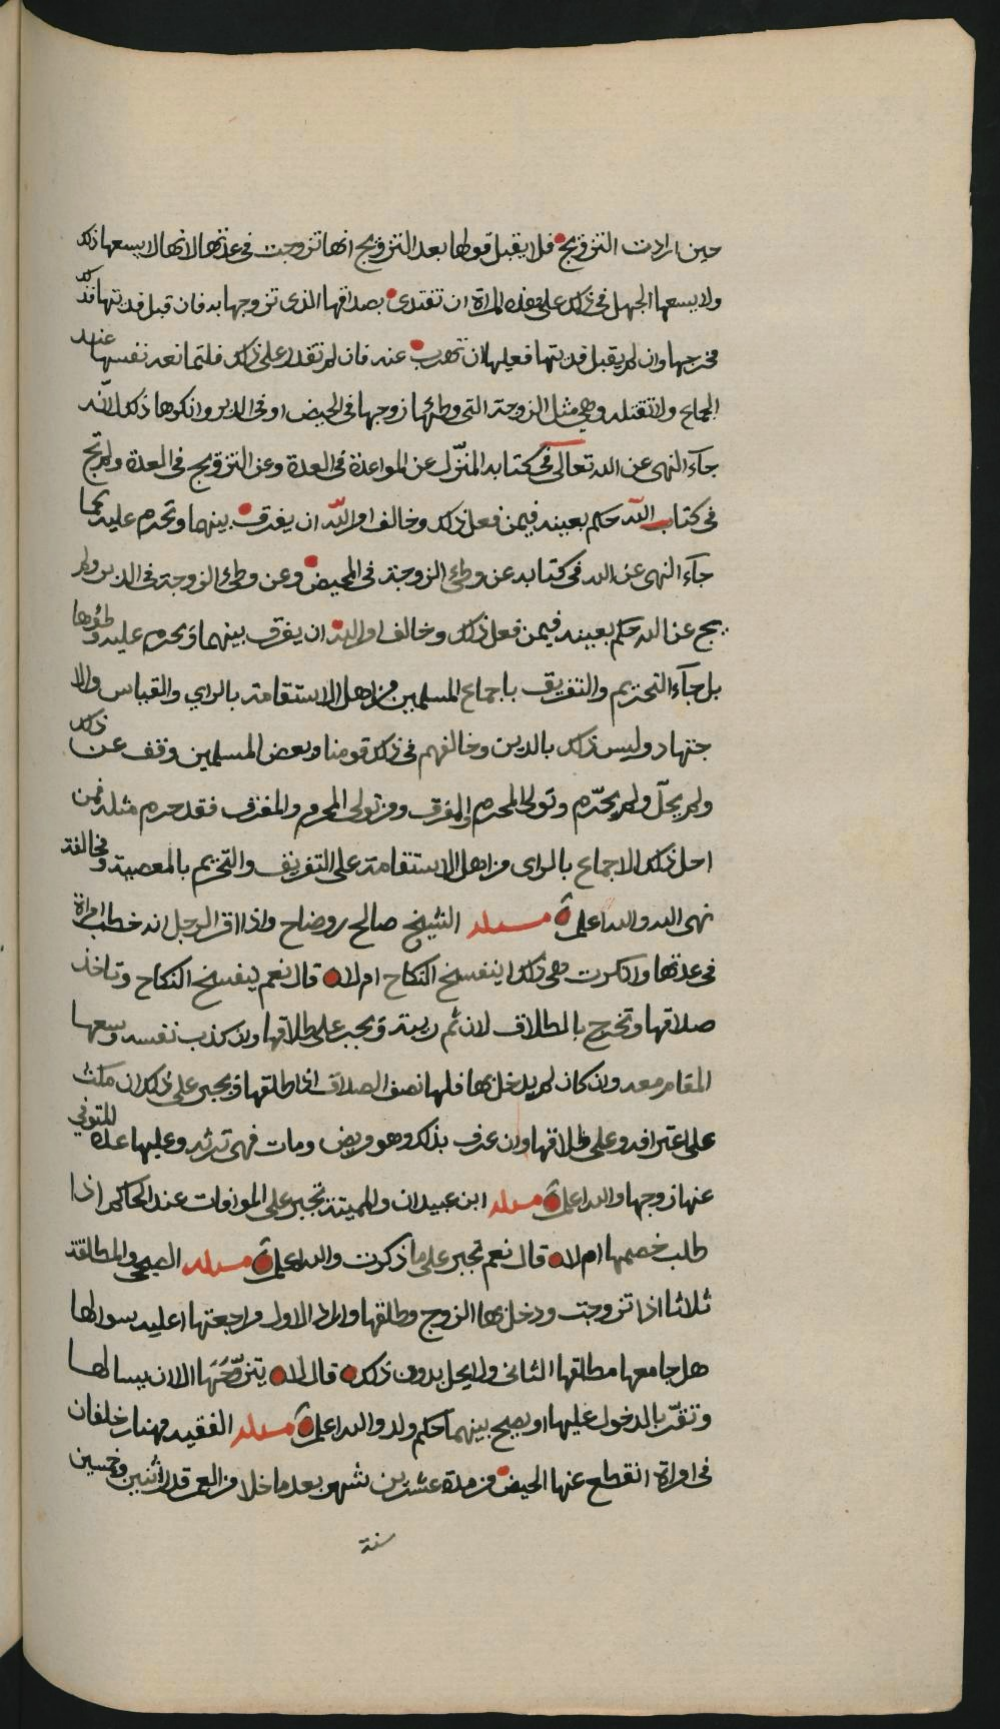 حين ارادت التزويج فلا يقبل قولها بعد التزويج انها تزوجت في عدتها لانها لا يسعها ذلك
ولا يسعها الجهل في ذلك على هذه المراة ان تفتدي بصداقها الذي تزوجها به فان قبل فديتها فذلك
مخرجها وان لم يقبل فديتها فعليها ان تهرب عنه فان لم تقدر على ذلك فلتمانعه نفسها عند
الجماع ولا تقتله وهي مثل الزوجة التي وطئها زوجها في الحيض او في الدبر وانكرها ذلك لانه
جآء النهي عن الله تعالى في كتابه المنزّل عن المواعدة في العدة وعن التزويج في العدة ولم تجئ
في كتاب الله حكم بعينه فيمن فعل ذلك وخالف امر الله ان يفرق بينهما وتحرم عليه كما
جآء النهي عن الله في كتابه عن وطئ الزوجة في المحيض وعن وطئ الزوجة في الدبر ولم
يجئ عن الله حكم بعينه فيمن فعل ذلك وخالف امر الله ان يفرق بينهما ويحرم عليه وطؤها
بل جآء التحريم والتفريق باجماع المسلمين من اهل الاستقامة بالراي والقياس والا
جتهاد وليس ذلك بالدين وخالفهم في ذلك قومنا وبعض المسلمين وقف عن ذلك
ولم يحلّ ولم يحرّم وتولى المحرم والمفرق ومن تولى المحرم والمفرق فقد حرم مثله فمن
احل ذلك الاجماع بالراي من اهل الاستقامة على التفريق والتحريم بالمعصية ومخالفة
نهى الله والله اعلم مسئلة الشيخ صالح بن وضاح واذا اقر الرجل انه خطب امراة
في عدتها وانكرت هي ذلك اينفسخ النكاح ام لا قال نعم ينفسخ النكاح وتاخذ
صداقها وتخرج بالطلاق لان ثم ريبة ويجبر على طلاقها وان كذب نفسه وسعها
المقام معه وان كان لم يدخل بها فلها نصف الصداق اذا طلقها ويجبر على ذلك ان مكث
على اعترافه وعلى طلاقها وان عرف بذلك وهو مريض ومات فهي ترثه وعليها عدة المتوفي
عنها زوجها والله اعلم مسئلة ابن عبيدان والمميتة تجبر على الموافات عند الحاكم اذا
طلب خصمها ام لا قال نعم تجبر على ما ذكرت والله اعلم مسئلة الصبحي والمطلقة
ثلاثا اذا تزوجت ودخل بها الزوج وطلقها واراد الاول مراجعتها اعليه سوالها
هل جامعها مطلقها الثاني ولا يحل بدون ذلك قال لا يتزوّجها الا ان يسالها
وتقرّ بالدخول عليها او يصح بينهما حكم ولد والله اعلم مسئلة الفقيه مهنا بن خلفان
في امراة انقطع عنها الحيض من مدة عشرين شهر بعد ما خلا من العمر قدر اثنين وخمسين
سنة